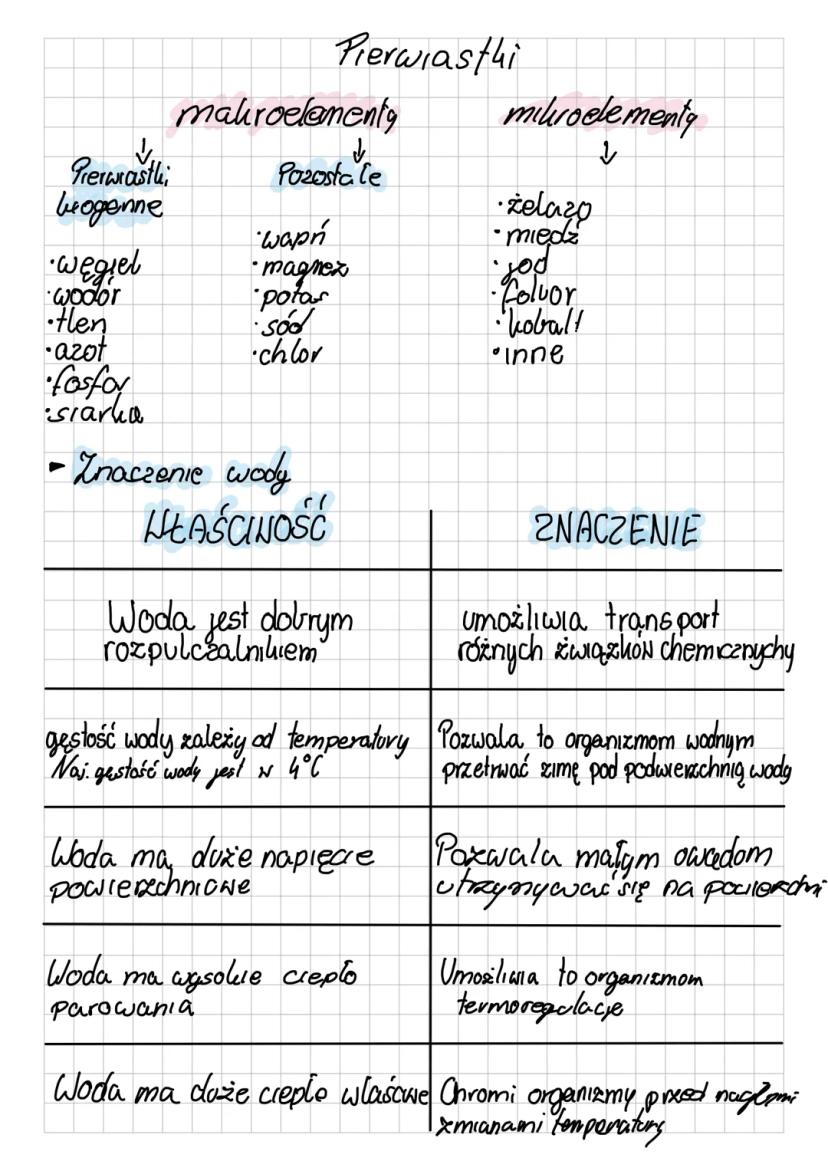 Pierwiastki
makroelementy
mikroelementy
Pierwiastki
biogenne
• węgiel
• wodór
• tlen
• azot
• fosfor
• siarka
Pozostałe
• wapń
• magnez
• potas
• sód
• chlor
• żelazo
• miedź
• jod
• foluor
• kobalt
• inne
- Znaczenie wody
WŁAŚCIWOŚĆ
ZNACZENIE
Woda jest dobrym
rozpulczalnikiem
umożliwia transport
różnych związków chemicznychy
gęstość wody zależy od temperatury
Naj. gęstość wody jest w 4°C
Pozwala to organizmom wodnym
przetrwać zimę pod podwierzchnią wody
Woda ma duże napięcie
powierzchniowe
Pozwala małym owadom
utrzymywać się na powierzchni
Woda ma wysokie ciepło
parowania
Umożliwia to organizmom
termoregulacje
Woda ma duże ciepło właściwe
Chromi organizmy przed nagłymi
zmianami temperatury